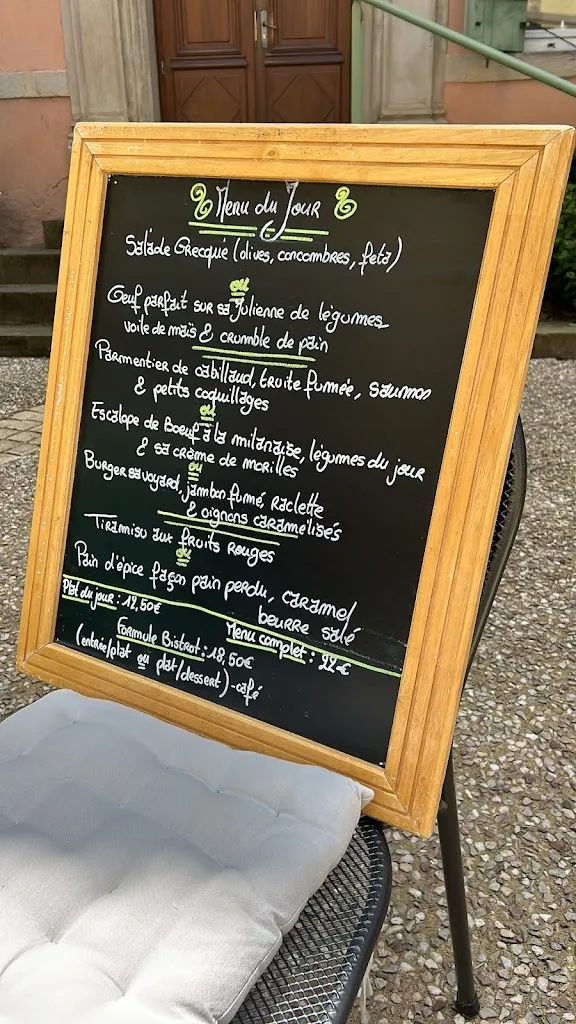 Menu du Jour
Salade Grecque (olives, concombres, feta)
ou
Oeuf parfait sur sa Julienne de légumes
voile de maïs & crumble de pain
Parmentier de cabillaud, truite fumée, saumon
& petits coquillages
ou
Escalope de Boeuf à la milanaise, légumes du jour
& sa crème de morilles
ou
Burger savoyard, jambon fumé, Raclette
& oignons caramélisés
Tiramisu aux fruits Rouges
ou
Pain d'épice façon pain perdu, caramel
beurre salé
Plat du jour : 12,50€
Menu complet : 22€
Formule Bistrot : 18,50€
(entrée/plat ou plat/dessert) - café